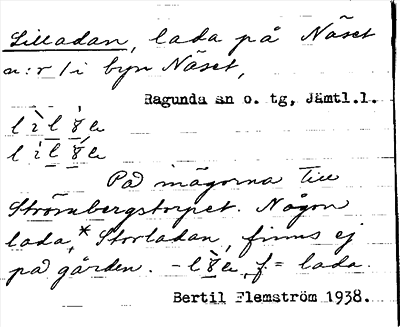 Lilladan, lada på Näset
n:r 1 i byn Näset,
Ragunda sn o. tg, Jämtl.l.
På inägorna till
Strömbergstorpet. Någon
lada, *Storladan, finns ej
på gården. - f = lada.
Bertil Flemström 1938.